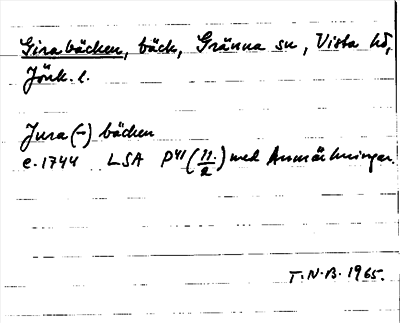 Girabäcken, bäck, Gränna sn, Vista hd,
Jönk. l.
Jura(-)bäcken
c. 1744 LSA P41 (11/2) med Anmärkningar.
T.N.B. 1965.